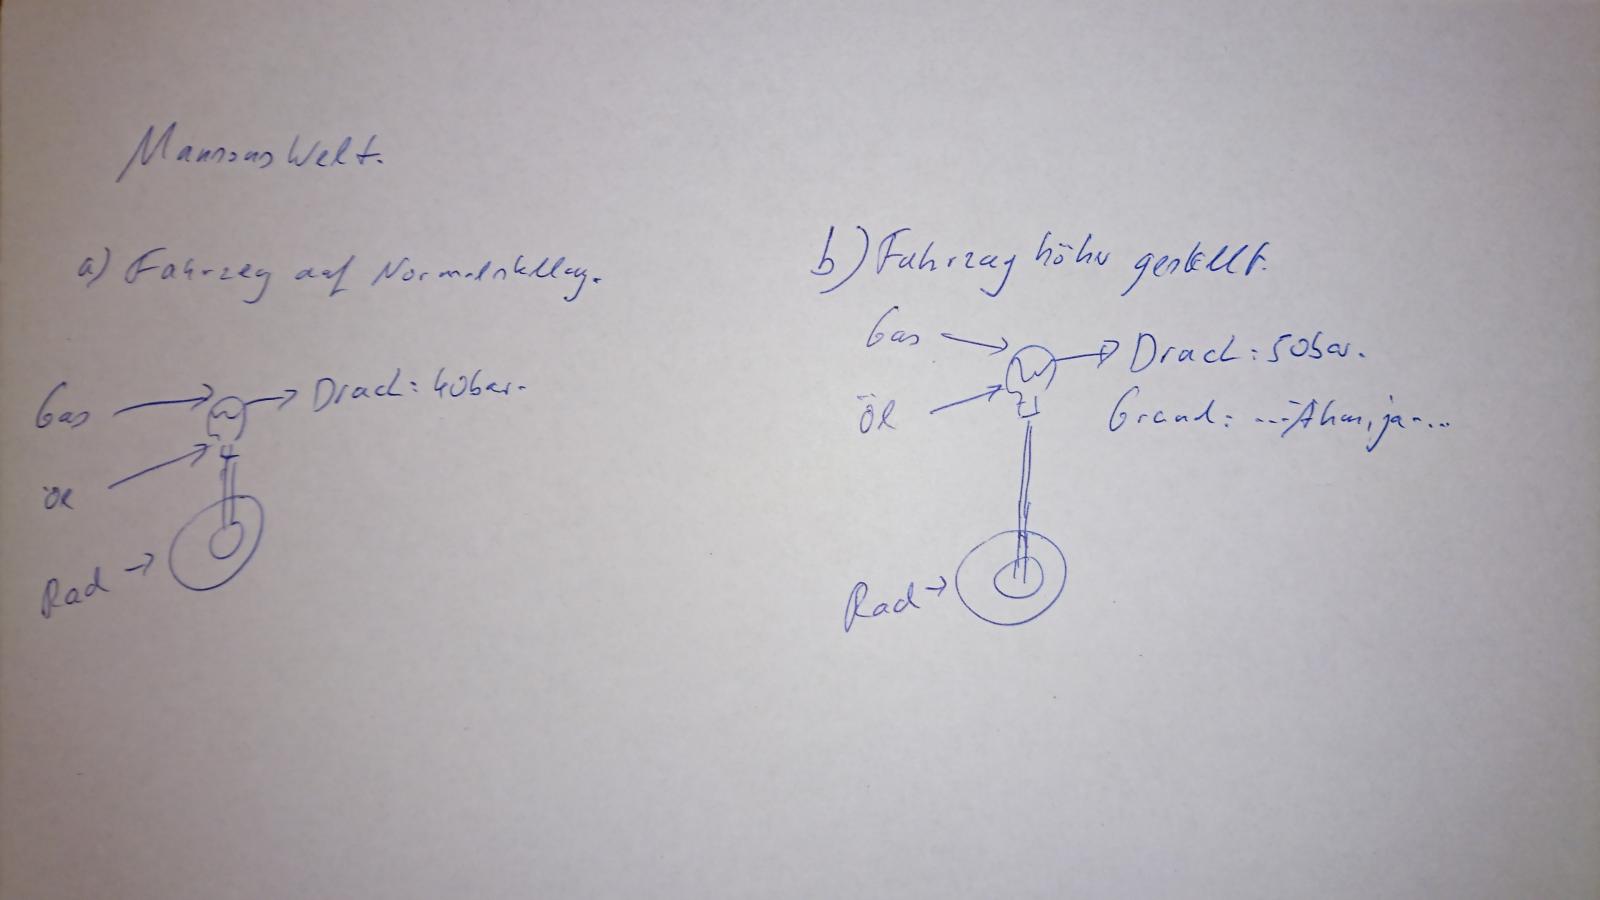 Mansons Welt.
a) Fahrzeug auf Normalstellung.
Gas
Druck: 40bar.
Öl
Rad
b) Fahrzeug höher gestellt.
Gas
Druck: 50bar.
Öl
Grund: ...Ähm, ja...
Rad